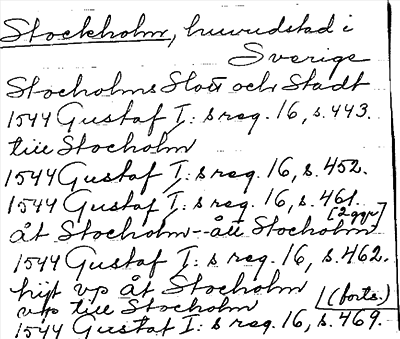 Stockholm, huvudstad i
Sverige
Stocholms Slott och Stadt
1544 Gustaf I: s reg. 16, s. 443.
till Stocholm
1544 Gustaf I: s reg. 16, s. 452.
1544 Gustaf I: s reg. 16, s. 461.
[2 ggr]
åt Stocholm--ått Stocholm
1544 Gustaf I: s reg. 16, s. 462.
hijt vp åt Stocholm
vp till Stocholm (forts.)
1544 Gustaf I: s reg. 16, s. 469.